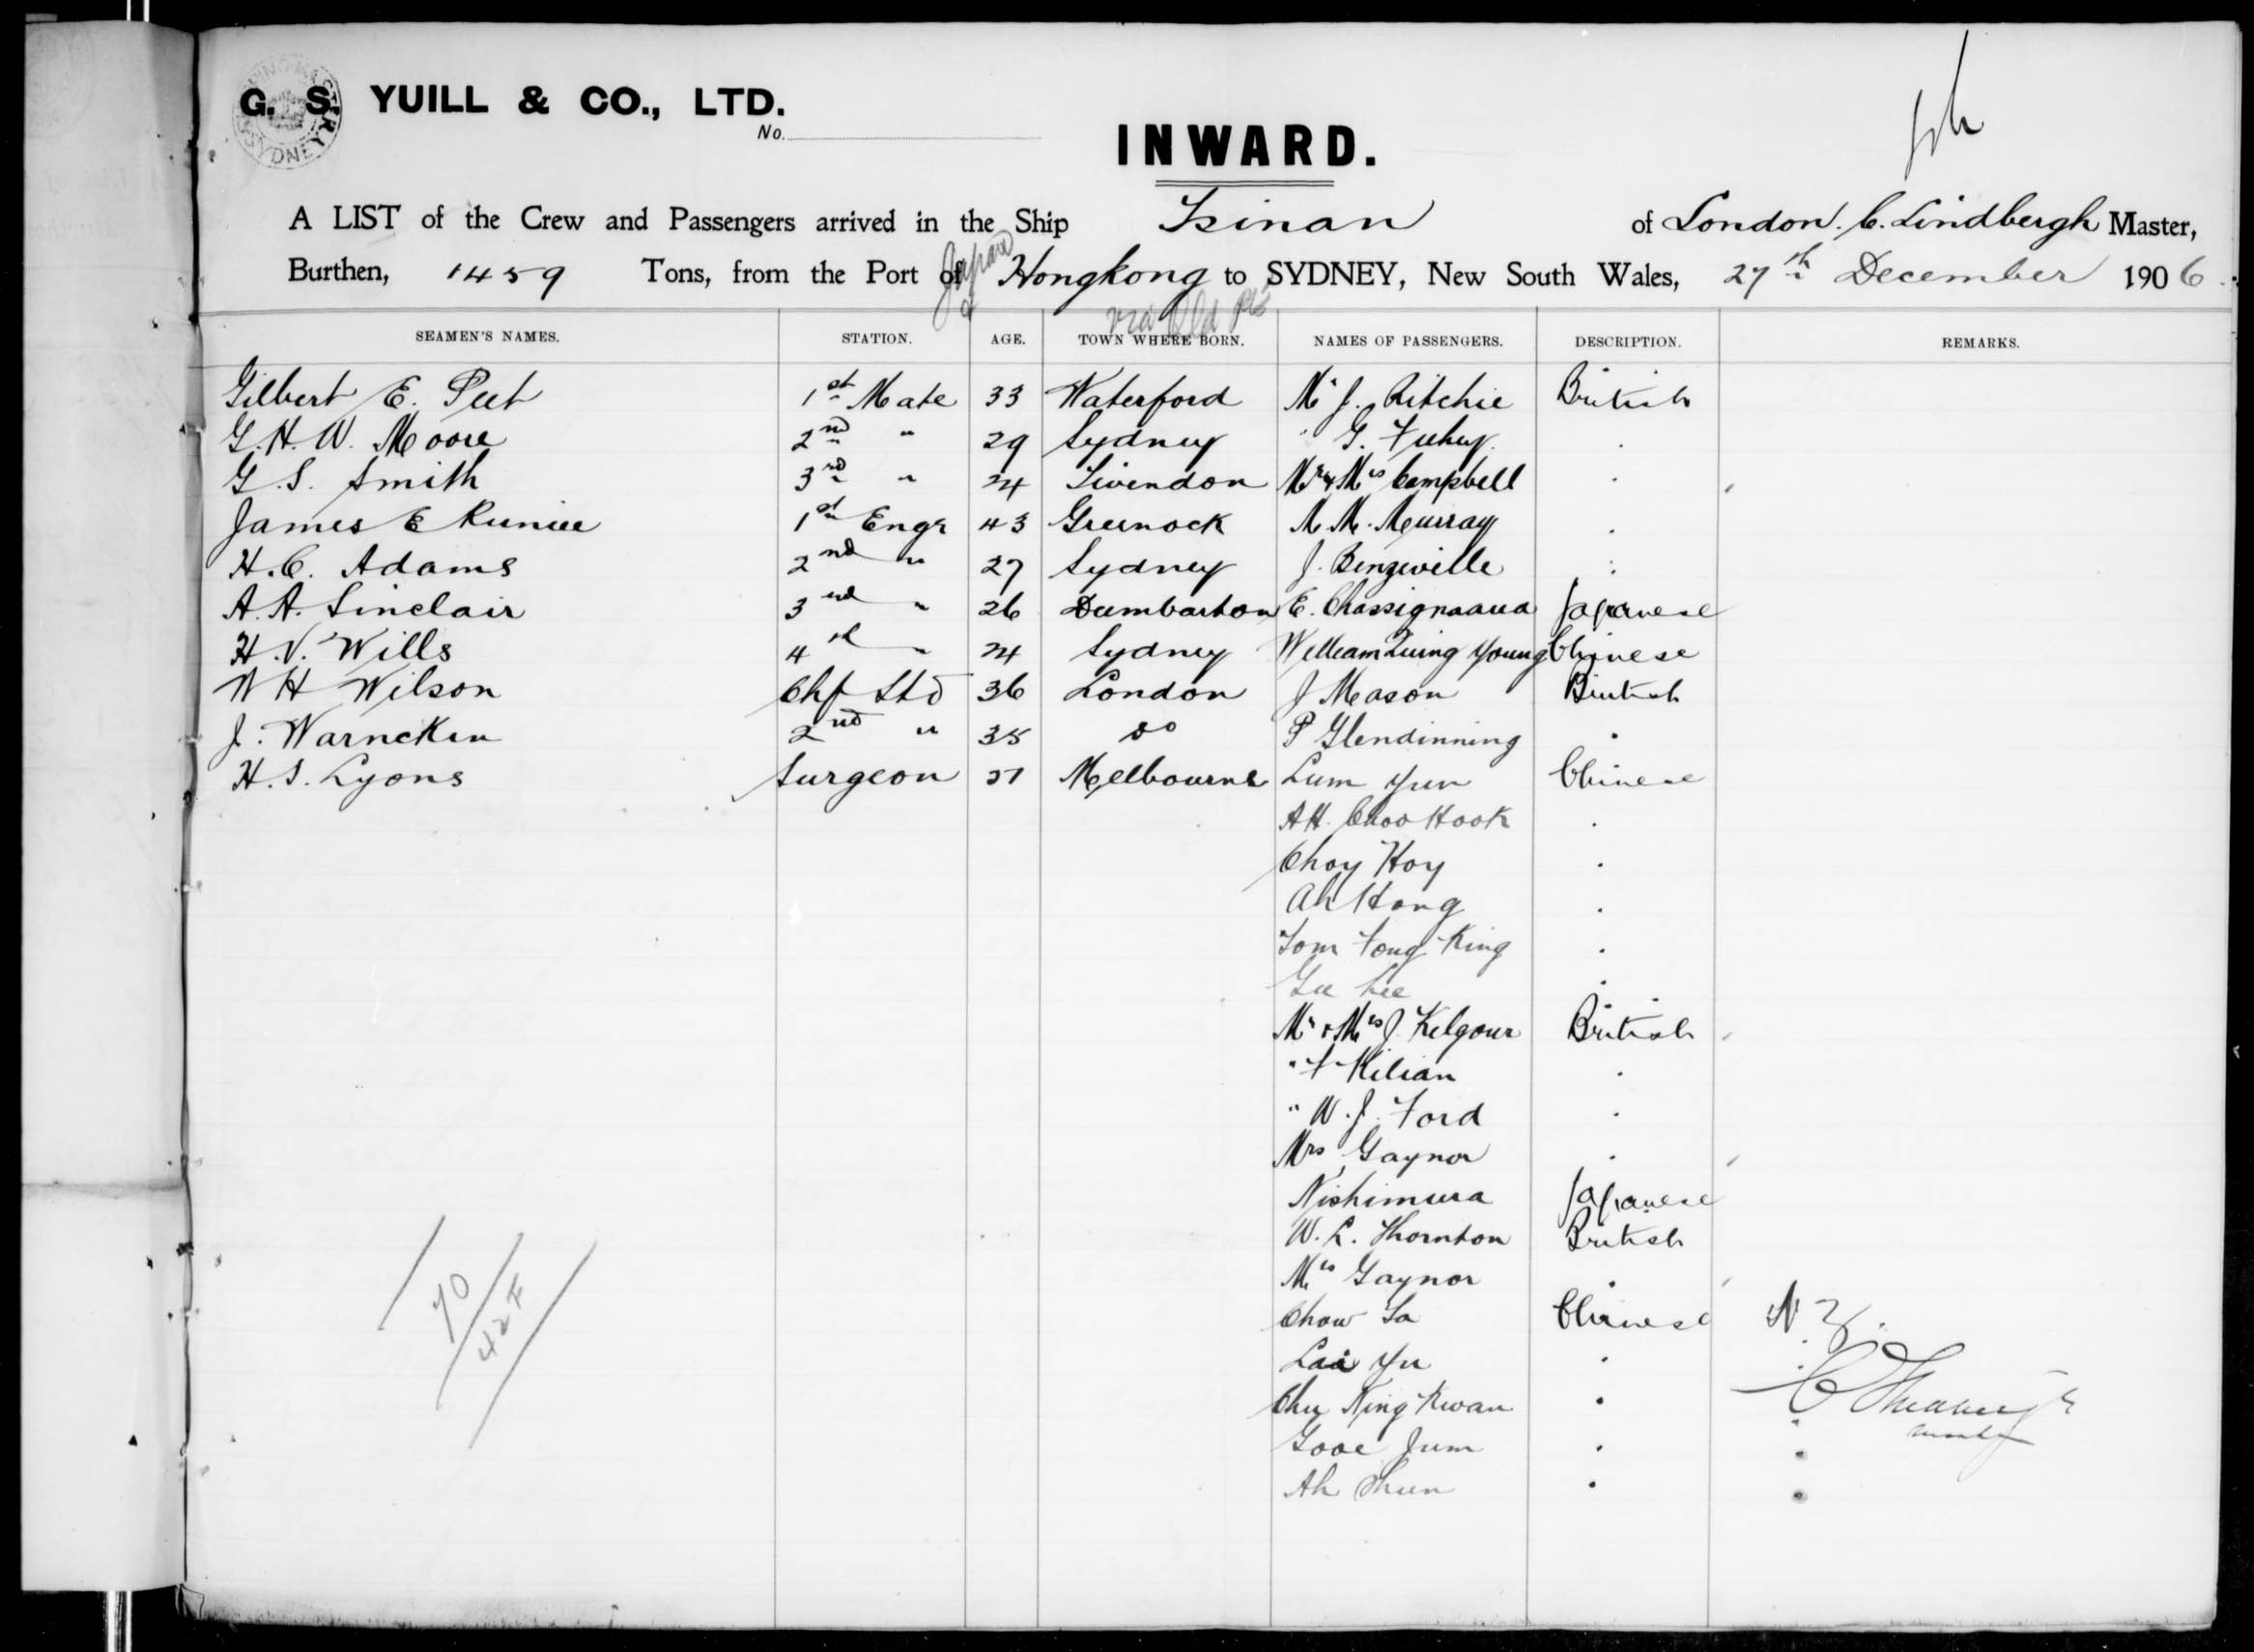 G. S. YUILL & CO., LTD.
No.
INWARD.
A LIST of the Crew and Passengers arrived in the Ship Tsinan of London. C. Lindbergh Master,
Burthen, 1459 Tons, from the Port of Japan & Hongkong to SYDNEY, New South Wales, 27th December 1906
via Qld pts
SEAMEN'S NAMES. STATION. AGE. TOWN WHERE BORN. NAMES OF PASSENGERS. DESCRIPTION. REMARKS.
Gilbert E. Peet 1st Mate 33 Waterford Mr J. Ritchie British
G.H.W. Moore 2nd " 29 Sydney " G. Fuhy.
G.S. Smith 3rd " 24 Swindon Mr & Mrs Campbell
James E 1st Engr 43 Greenock M. Murray
H.C. Adams 2nd " 27 Sydney J.
A.A. Sinclair 3rd " 26 Dumbarton E. Japanese
H.V. Wills 4th " 24 Sydney William Young Chinese
W H Wilson Chf Std 36 London J Mason British
J. Warncken 2nd " 35 do P Glendinning
H.S. Lyons Surgeon Melbourne Lum Yun Chinese
AH. Choo Hook
Choy Hoy
Ah Hong
Tom Fong King
Gee Lee
Mr & Mrs J. Kilgour British
" F Kilian
" W.J. Ford
Mrs Gaynor
Nishimura Japanese
W.L. Thornton British
Mrs Gaynor
Chow Sa Chinese N Z.
Lai Yu
King Kwan
Jum
Ah Shun
70
42 F